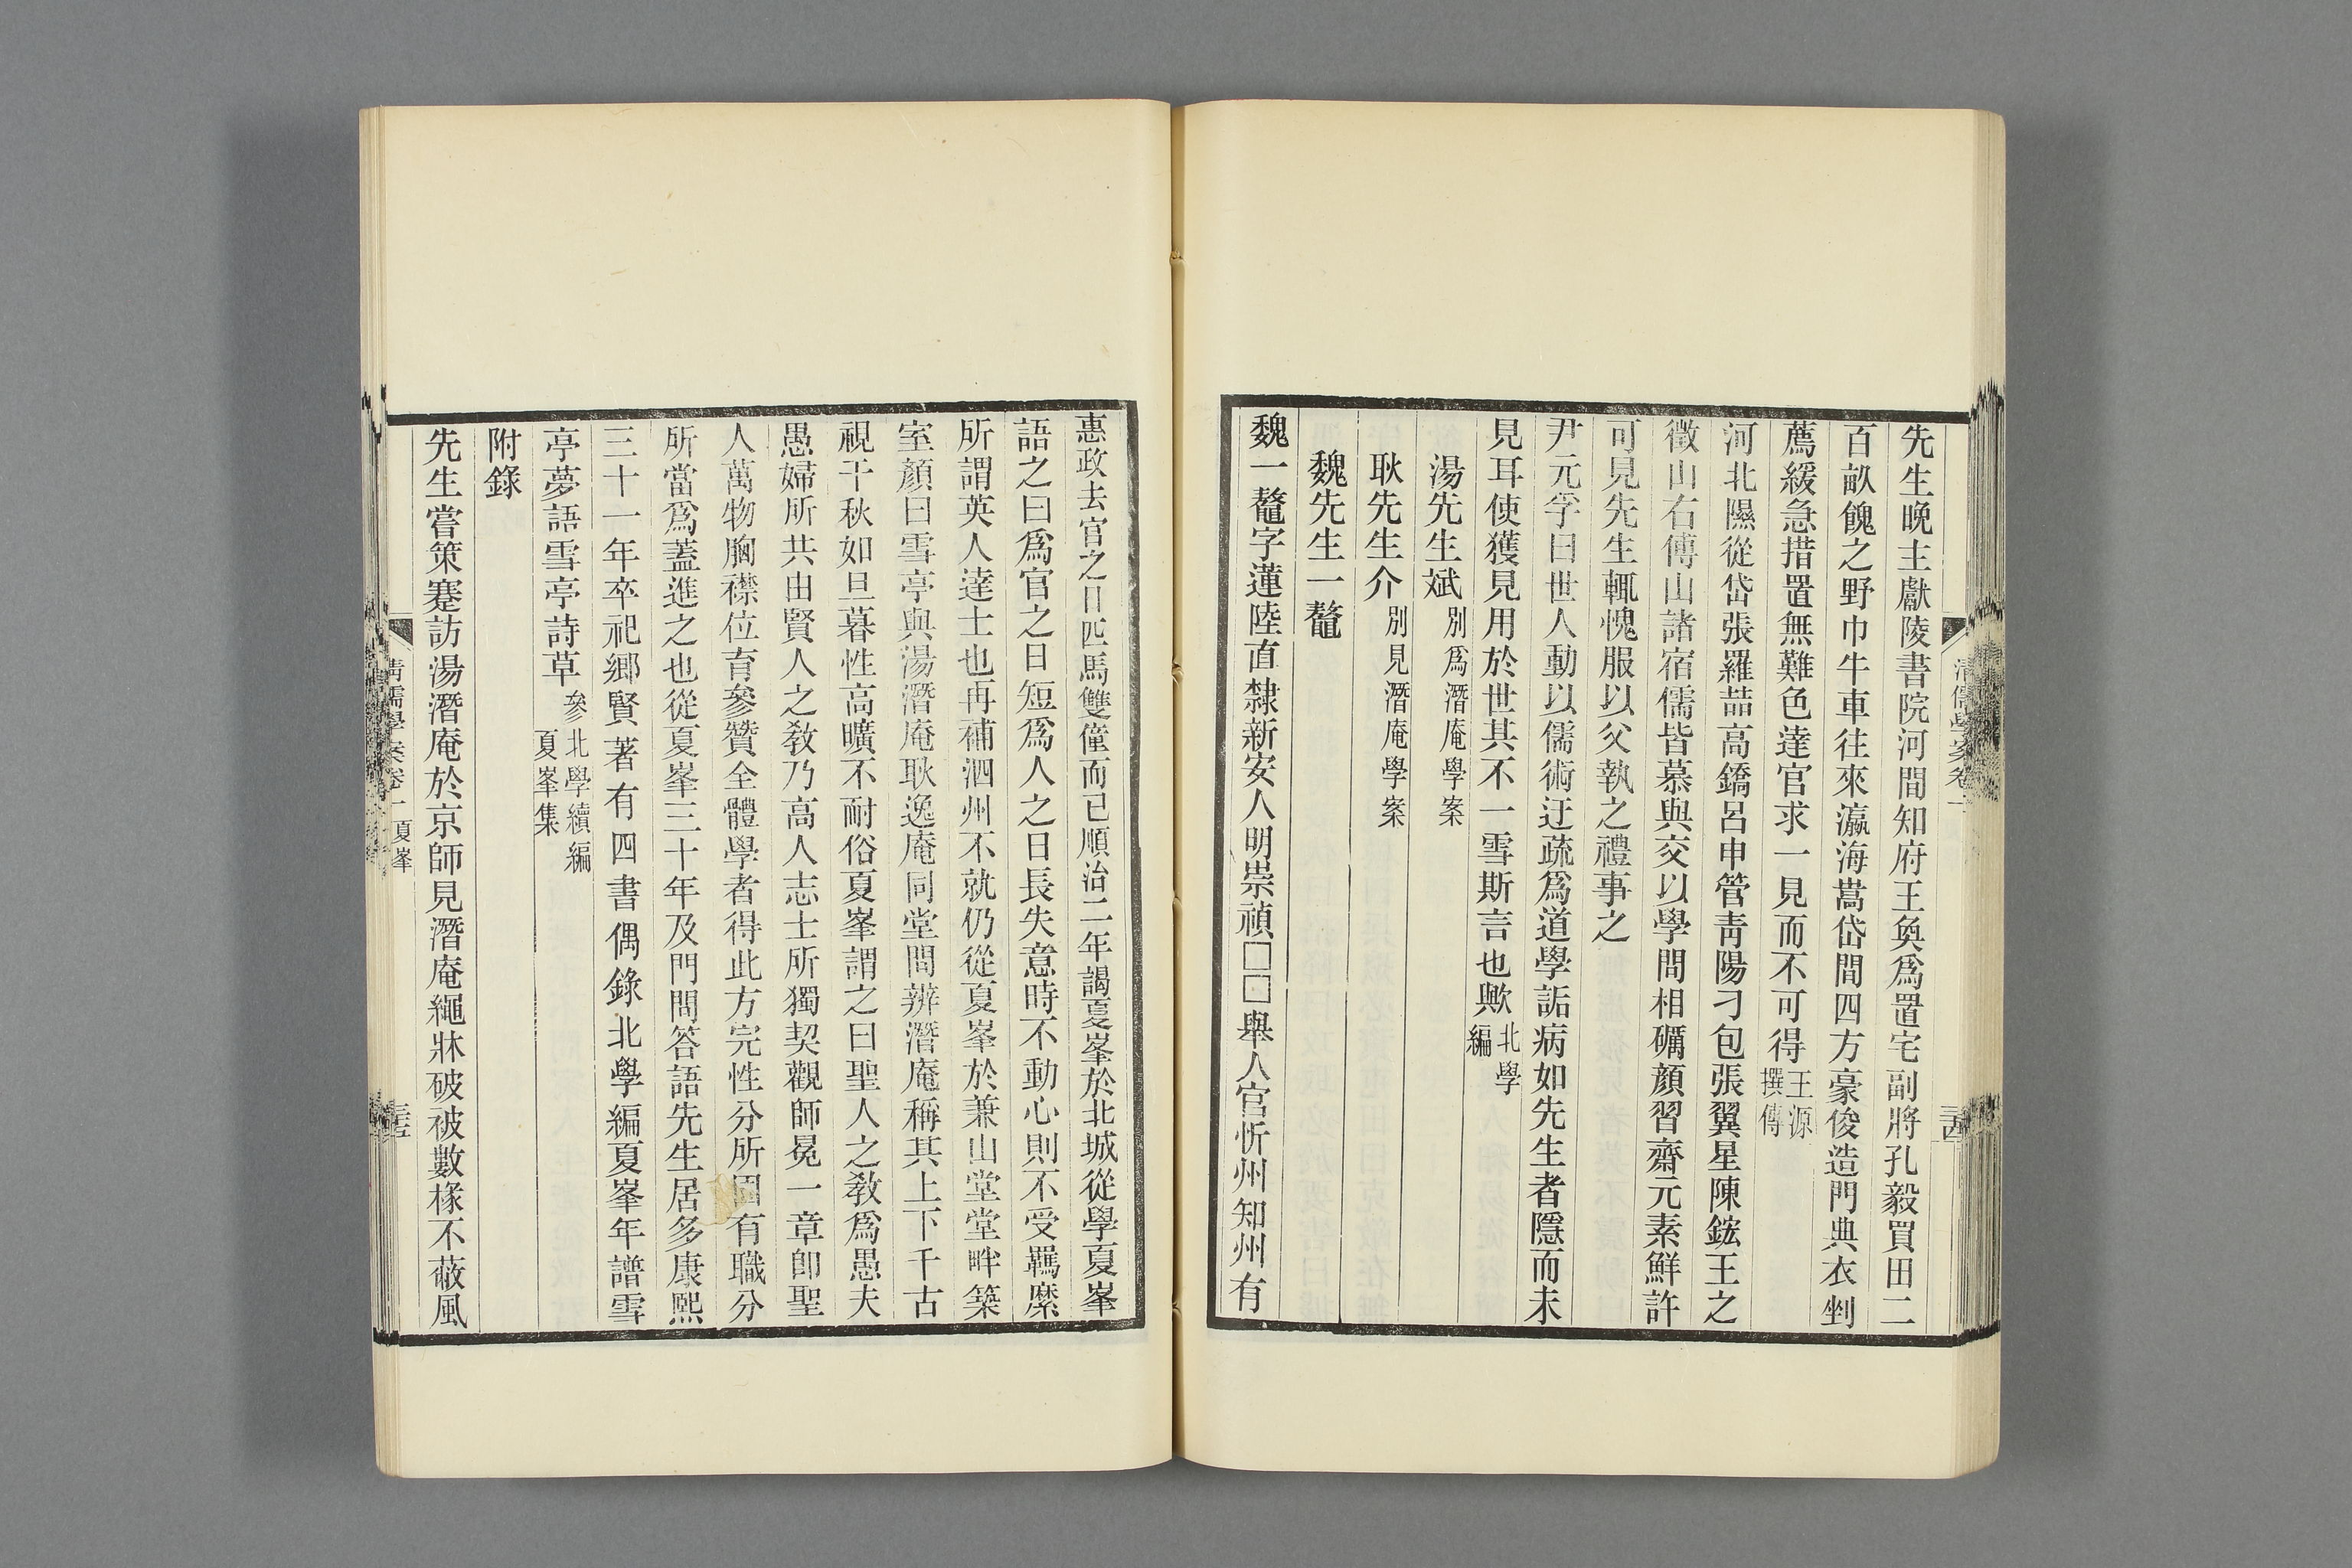 先生晚主獻陵書院河間知府王奐爲置宅副將孔毅買田二
百畝餽之野巾牛車往來瀛海嵩岱間四方豪俊造門典衣剉
薦緩急措置無難色達官求一見而不可得王源撰傳
河北隰從岱張羅喆高鐈呂申管靑陽刁包張翼星陳鋐王之
徵山右傅山諸宿儒皆慕與交以學問相礪顏習齋元素鮮許
可見先生輒愧服以父執之禮事之
尹元孚曰世人動以儒術迂疏爲道學詬病如先生者隱而未
見耳使獲見用於世其不一雪斯言也歟北學編
湯先生斌別爲潛庵學案
耿先生介別見潛庵學案
魏先生一鼇
魏一鼇字蓮陸直隸新安人明崇禎□□舉人官忻州知州有
清儒學案卷一
三四
惠政去官之日匹馬雙僮而已順治二年謁夏峯於北城從學夏峯
語之曰爲官之日短爲人之日長失意時不動心則不受羈縻
所謂英人達士也再補泗州不就仍從夏峯於兼山堂堂畔築
室顏曰雪亭與湯潛庵耿逸庵同堂問辨潛庵稱其上下千古
視千秋如旦暮性高曠不耐俗夏峯謂之曰聖人之敎爲愚夫
愚婦所共由賢人之敎乃高人志士所獨契觀師冕一章卽聖
人萬物胸襟位育參贊全體學者得此方完性分所固有職分
所當爲蓋進之也從夏峯三十年及門問答語先生居多康熙
三十一年卒祀鄉賢著有四書偶錄北學編夏峯年譜雪
亭夢語雪亭詩草參北學續編夏峯集
附錄
先生嘗策蹇訪湯潛庵於京師見潛庵繩牀破被數椽不蔽風
清儒學案卷一 夏峯
三五